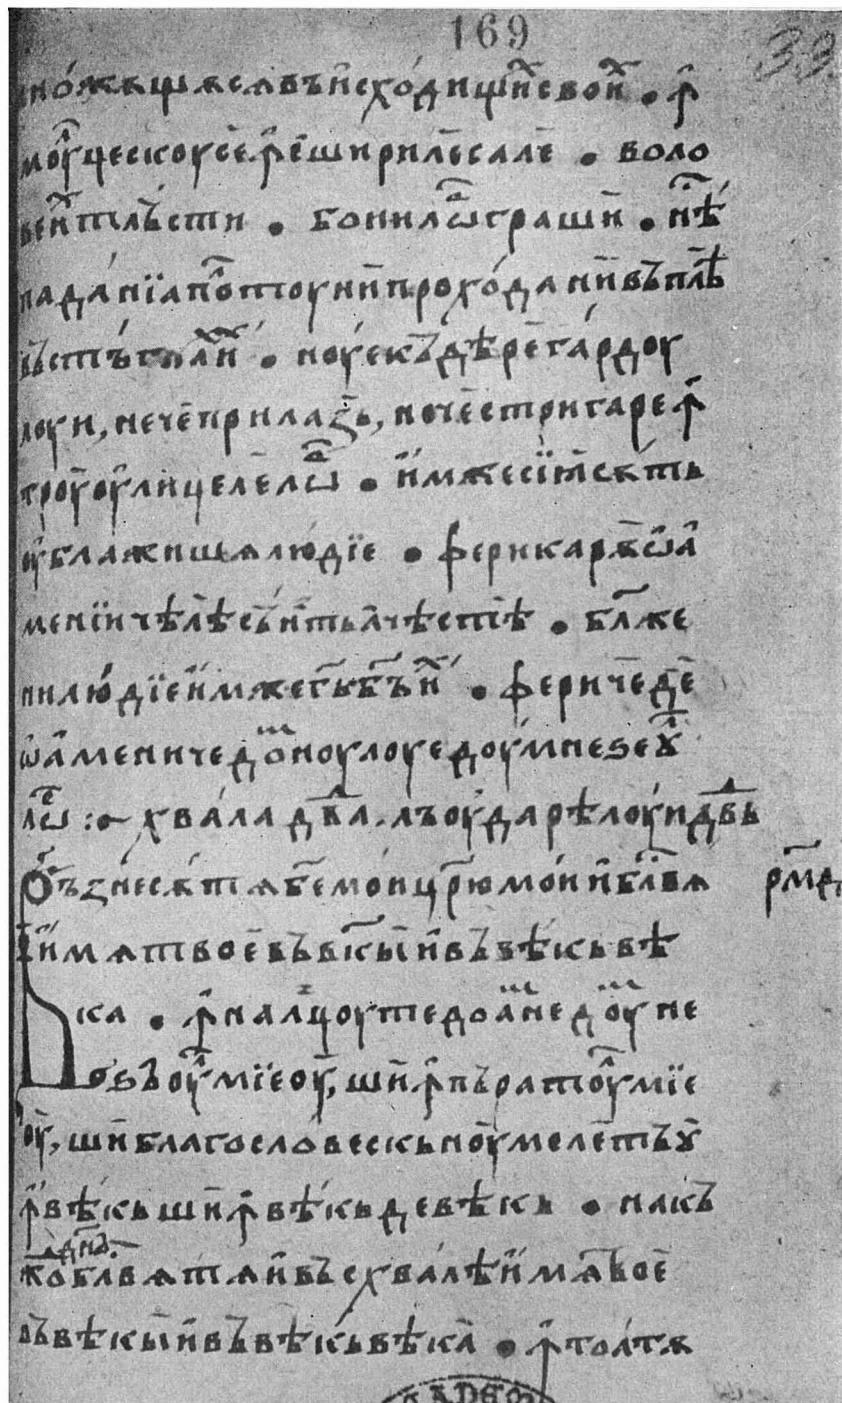 169 33
множѧщѧсѧ въ исходищи свои · ꙟ
моуцескоусе ꙟ еши рилесале · воло
ве и тлъсти · бои илѡ граши · нѣ
падания плотоу ни прохода ни въ плѣ
въ стъгна и · ноу е къдѣре гардоу
лоуи, нече прилазь, нече стригаре ꙟ
троу оулицеле лѡ · имже сїѧ сѫть
оублажишѧ людїе · ферикарѣ ѡа
мении чѣлѣ сънть ачѣстѣ · блже
ни людїе имже гь бъ и · фериче де
ѡамени че домноулоу е доумнеѕеꙋ
лѡ :~ хвала два. лъоударѣ лоуи двь
Възнесѫ тѧ бе мои црю мои и блвѧ рмд
имѧ твое въ вкы и въ вѣкь вѣ
ка · ꙟналцоу те доамне доумне
ѕъоу мїеоу, ши ꙟпърат оу мїе
оу, ши благословескь ноумеле тъꙋ
ꙟ вѣкь ши ꙟ вѣкь де вѣкь · на къ
жодна
блвѧ тѧ и въсхвалѣ имѧ твое
въ вѣкы и въ вѣкь вѣка · ꙟ тоатѫ